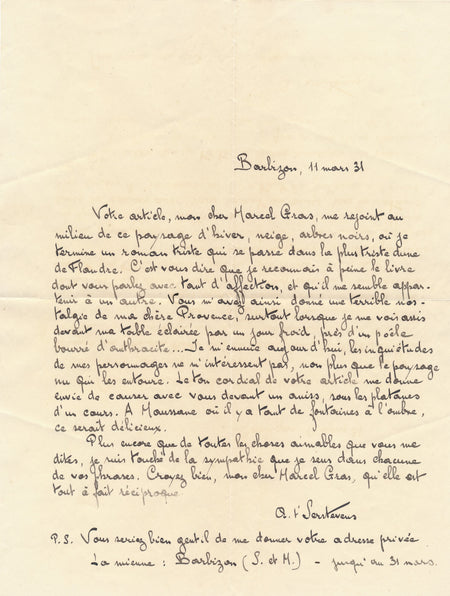 Barbizon, 11 mars 31
Votre article, mon cher Marcel Gras, me rejoint au
milieu de ce paysage d'hiver, neige, arbres noirs, où je
termine un roman triste qui se passe dans la plus triste dune
de Flandre. C'est vous dire que je reconnais à peine le livre
dont vous parlez avec tant d'affection, et qu'il me semble appar-
tenir à un autre. Vous m'avez ainsi donné une terrible nos-
talgie de ma chère Provence, surtout lorsque je me vois assis
devant ma table éclairée par un jour froid, près d'un poêle
bourré d'anthracite... Je m'ennuie aujourd'hui, les inquiétudes
de mes personnages ne m'intéressent pas, non plus que le paysage
nu qui les entoure. Le ton cordial de votre article me donne
envie de causer avec vous devant un aniss, sous les platanes
d'un cours. A Maussane où il y a tant de fontaines à l'ombre,
ce serait délicieux.
Plus encore que de toutes les choses aimables que vous me
dites, je suis touché de la sympathie que je sens dans chacune
de vos phrases. Croyez bien, mon cher Marcel Gras, qu'elle est
tout à fait réciproque
A. t'Serstevens
P.S. Vous seriez bien gentil de me donner votre adresse privée
La mienne : Barbizon (S. et M.) - jusqu'au 31 mars.